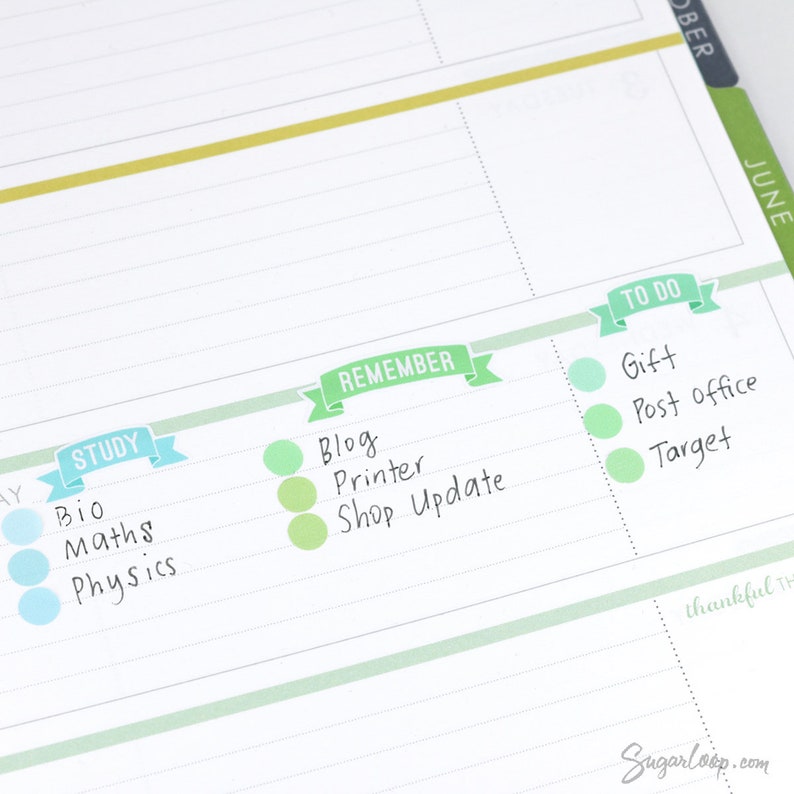 OBER
JUNE
3 TUESDAY
TO DO
Gift
Post Office
Target
REMEMBER
Blog
Printer
Shop Update
STUDY
AY
Bio
Maths
Physics
thankful TH
Sugarloop.com